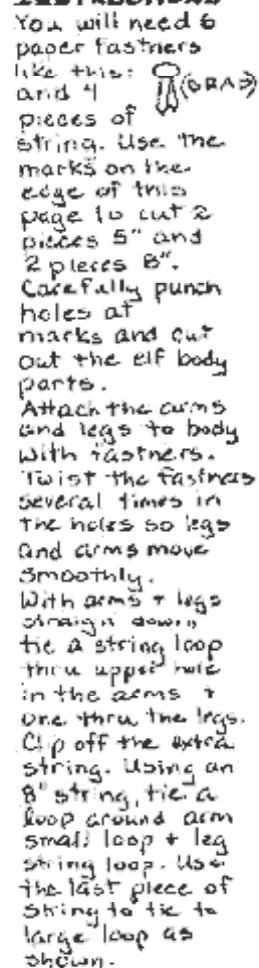 INSTRUCTIONS
You will need 6
paper fastners
like this: (BRAD)
and 4
pieces of
string. Use the
marks on the
edge of this
page to cut 2
pieces 5" and
2 pieces 8".
Carefully punch
holes at
marks and cut
out the elf body
parts.
Attach the arms
and legs to body
with fastners.
Twist the fastners
several times in
the holes so legs
and arms move
smoothly.
With arms + legs
straight down,
tie a string loop
thru upper hole
in the arms +
one thru the legs.
Clip off the extra
string. Using an
8" string, tie a
loop around arm
small loop + leg
string loop. Use
the last piece of
string to tie to
large loop as
shown.